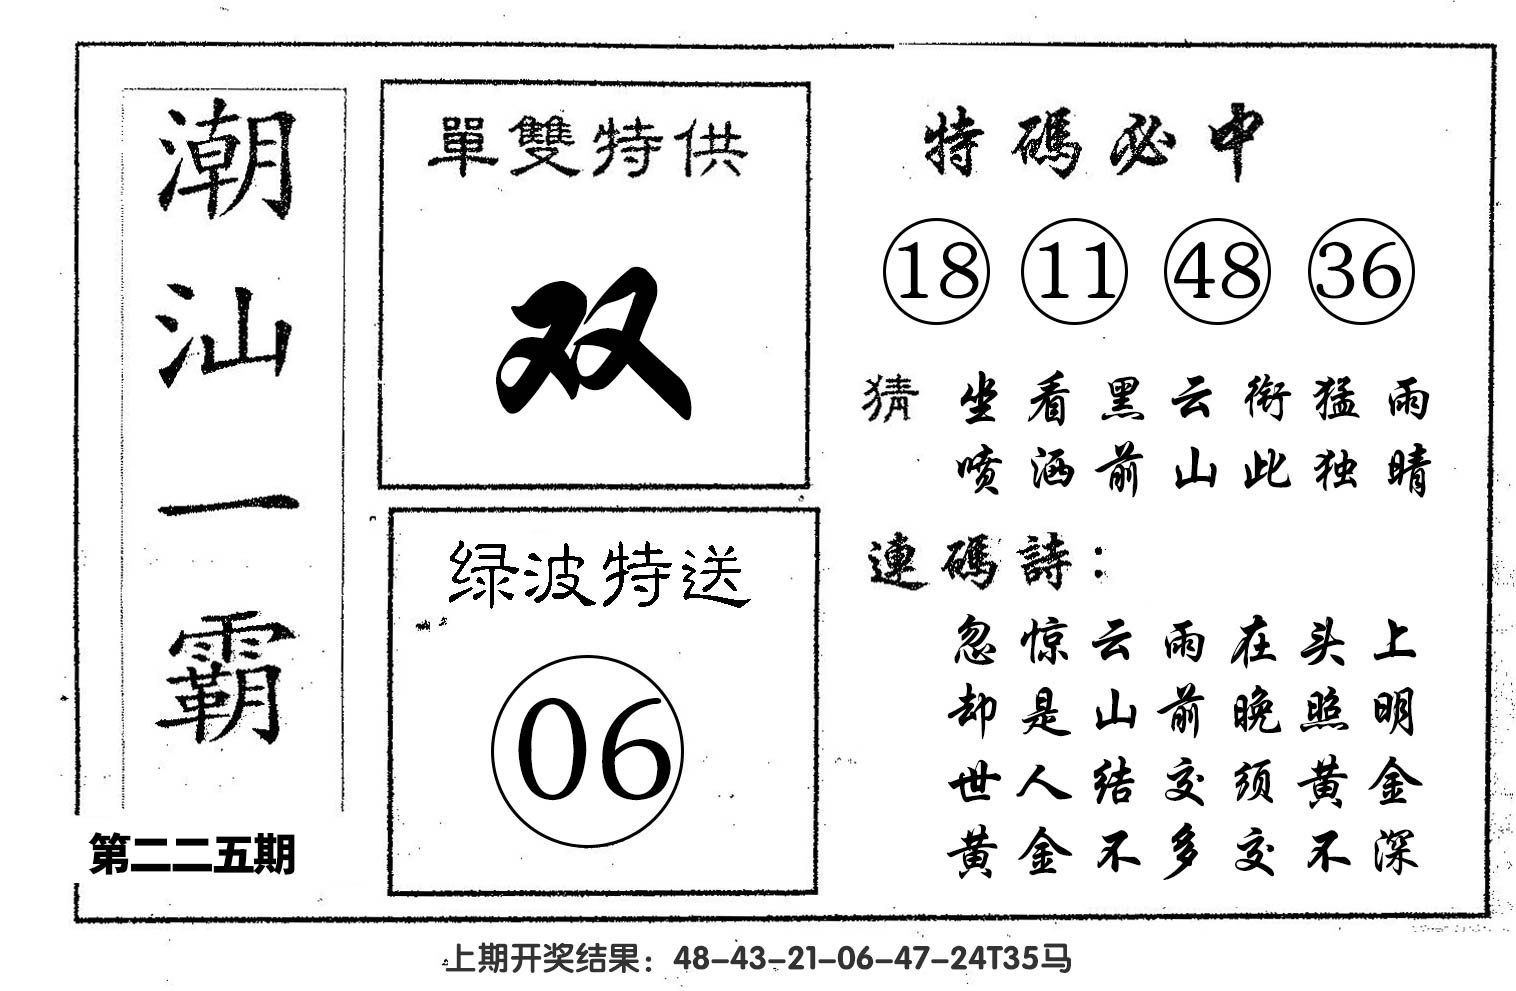 潮汕一霸
第二二五期
單雙特供
双
绿波特送
06
特碼必中
18 11 48 36
猜 坐看黑云衔猛雨
喷洒前山此独晴
連碼詩：
忽惊云雨在头上
却是山前晚照明
世人结交须黄金
黄金不多交不深
上期开奖结果：48-43-21-06-47-24T35马